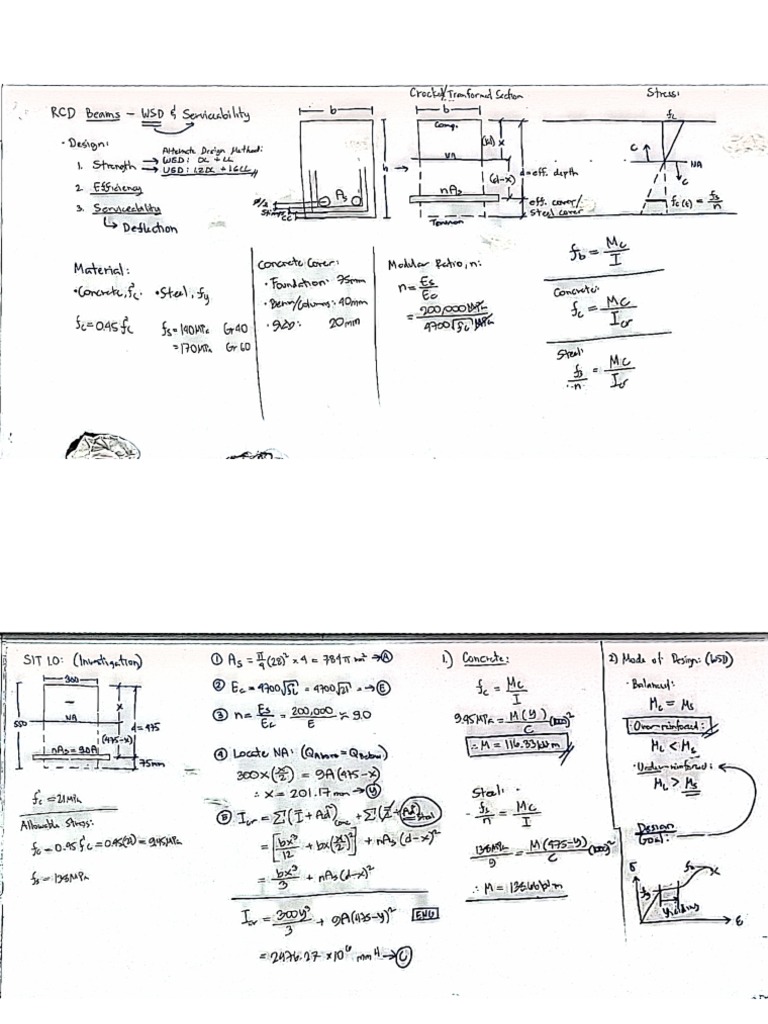 RCD Beams - WSD & Serviceability
• Design:
Alternate Design Method:
1. Strength → WSD: DL + LL
→ USD: 1.2DL + 1.6LL
2. Efficiency
3. Serviceability
↳ Deflection
b
h
As
CC
Cracked/Transformed Section
b
Comp.
NA
nAs
Tension
(kd) x
(d-x)
d = eff. depth
eff. cover/
steel cover
Stress:
fc
C
NA
C
fc(t) = fs/n
Material:
• Concrete, f'c • Steel, fy
fc = 0.45 f'c fs = 140MPa Gr 40
= 170MPa Gr 60
Concrete Cover:
• Foundation: 75mm
• Beam/Columns: 40mm
• Slab: 20mm
Modular Ratio, n:
n = Es/Ec
= 200,000 MPa / 4700√f'c MPa
fb = Mc/I
Concrete:
fc = Mc/Icr
Steel:
fs/n = Mc/Icr
SIT 1.0: (Investigation)
300
550
NA
nAs = 9.0A
x
(475-x)
d = 475
75mm
f'c = 21MPa
Allowable Stress:
fc = 0.45 f'c = 0.45(21) = 9.45MPa
fs = 138MPa
① As = π/4 (28)² × 4 = 784π mm² → A
② Ec = 4700√f'c = 4700√21 = → E
③ n = Es/Ec = 200,000/E ≈ 9.0
④ Locate NA: (QAbove = QBelow)
300x(x/2) = 9A(475-x)
∴ x = 201.17mm → y
⑤ Icr = Σ(I + Ad²)conc + Σ(I + Ad²)steel
= [bx³/12 + bx(x/2)²] + nAs(d-x)²
= bx³/3 + nAs(d-x)²
Icr = 300y³/3 + 9A(475-y)² ENG
= 2476.27 ×10⁶ mm⁴ → C
1.) Concrete:
fc = Mc/I
9.45MPa = M(y)/C (1000)²
∴ M = 116.33kN·m
Steel:
fs/n = Mc/I
138MPa/9 = M(475-y)/C (1000)²
∴ M = 138.66kN·m
2) Mode of Design: (WSD)
• Balanced:
Mc = Ms
• Over-reinforced:
Mc < Ms
• Under-reinforced:
Mc > Ms
Design
Goal:
fy
Yielding
ε